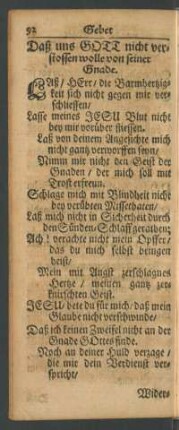 92 Gebet
Daß uns GOTT nicht ver-
stossen wolle von seiner
Gnade.
LAß/ HErr/ die Barmhertzig-
keit sich nicht gegen mir ver-
schliessen/
Lasse meines JESU Blut nicht
bey mir vorüber fliessen.
Laß von deinem Angesichte mich
nicht gantz verworffen seyn/
Nimm mir nicht den Geist der
Gnaden/ der mich soll mit
Trost erfreun.
Schlage mich mit Blindheit nicht
bey verübten Missethaten/
Laß mich nicht in Sicherheit durch
den Sünden-Schlaff gerathen;
Ach! verachte nicht mein Opffer/
das du mich selbst bringen
heist/
Mein mit Angst zerschlagnes
Hertze/ meinen gantz zer-
knirschten Geist.
JESU/ bete du für mich/ daß mein
Glaube nicht verschwinde/
Daß ich keinen Zweifel nicht an der
Gnade GOttes finde.
Noch an deiner Huld verzage/
die mir dein Verdienst ver-
spricht/
Wider-